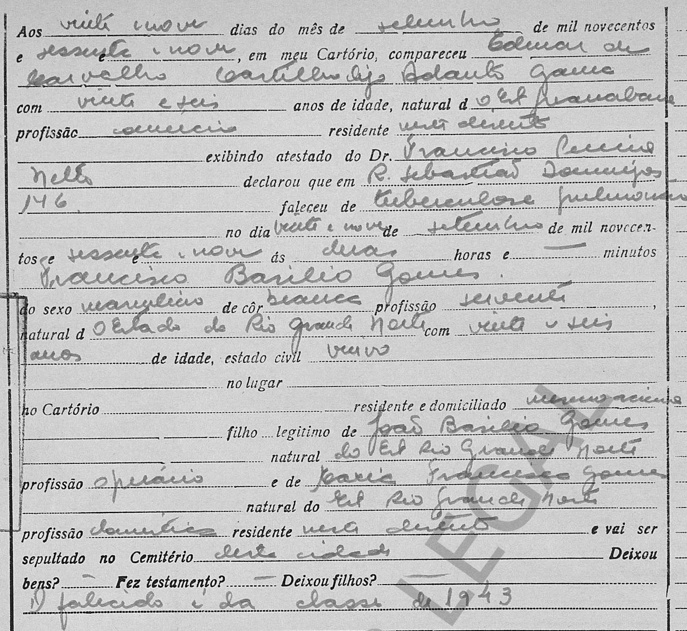 Aos vinte e nove dias do mês de setembro de mil novecentos
e sessenta e nove, em meu Cartório, compareceu Edmar de
Carvalho Castilho Adauto Gama
com vinte e seis anos de idade, natural do Est Guanabara
profissão comercio residente neste distrito
exibindo atestado do Dr. Francisco Pereira
Netto declarou que em R. Sebastião Domingos
146 faleceu de tuberculose pulmonar
no dia vinte e nove de setembro de mil novecen-
tos e sessenta e nove ás duas horas e — minutos
Francisco Basilio Gomes
do sexo masculino de côr branca profissão servente,
natural do Estado do Rio Grande Norte com vinte e seis
anos de idade, estado civil viuvo
no lugar
no Cartório residente e domiciliado mesmo acima
filho legitimo de João Basilio Gomes
natural do Est Rio Grande Norte
profissão operário e de Maria Francisca Gomes
natural do Est Rio Grande Norte
profissão domestica residente neste distrito e vai ser
sepultado no Cemitério desta cidade Deixou
bens? — Fez testamento? — Deixou filhos? —
O falecido é da classe de 1943
LEGAL